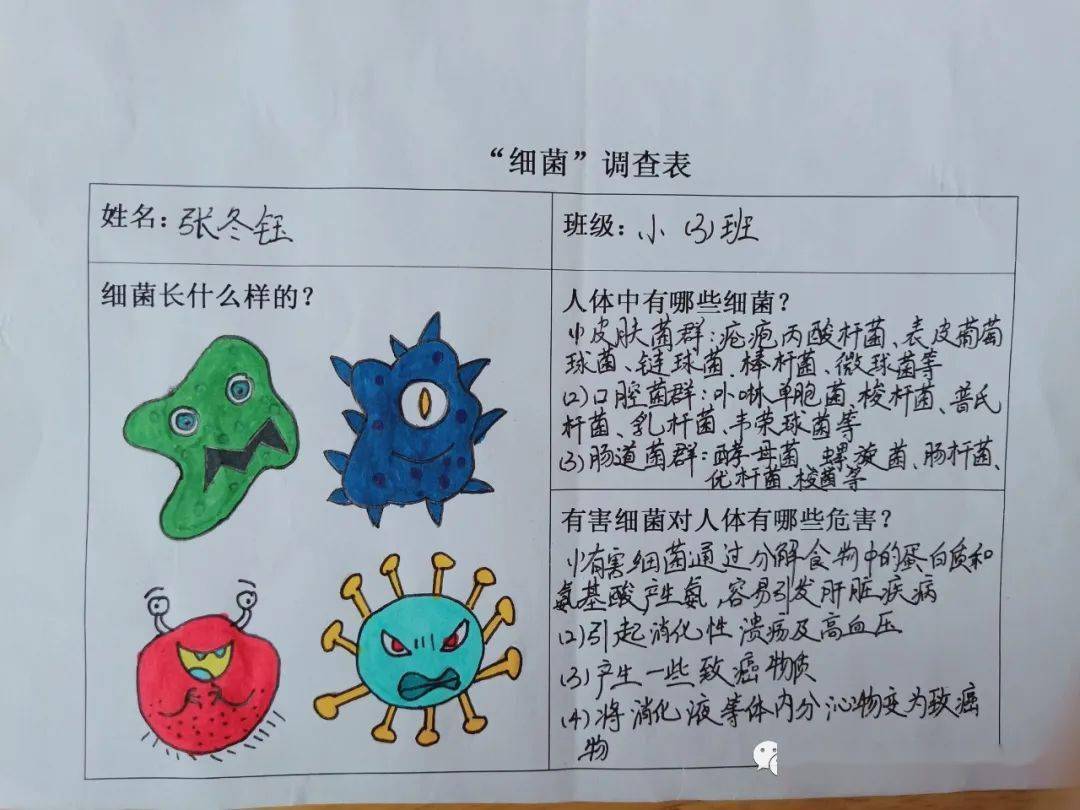 “细菌”调查表
姓名：张冬钰
班级：小（3）班
细菌长什么样的？
人体中有哪些细菌？
(1)皮肤菌群：疮疱丙酸杆菌、表皮葡萄
球菌、链球菌、棒杆菌、微球菌等
(2)口腔菌群：卟啉单胞菌、梭杆菌、普氏
杆菌、乳杆菌、韦荣球菌等
(3)肠道菌群：酵母菌、螺旋菌、肠杆菌、
优杆菌、梭菌等
有害细菌对人体有哪些危害？
(1)有害细菌通过分解食物中的蛋白质和
氨基酸产生氨,容易引发肝脏疾病
(2)引起消化性溃疡及高血压
(3)产生一些致癌物质
(4)将消化液等体内分沁物变为致癌
物